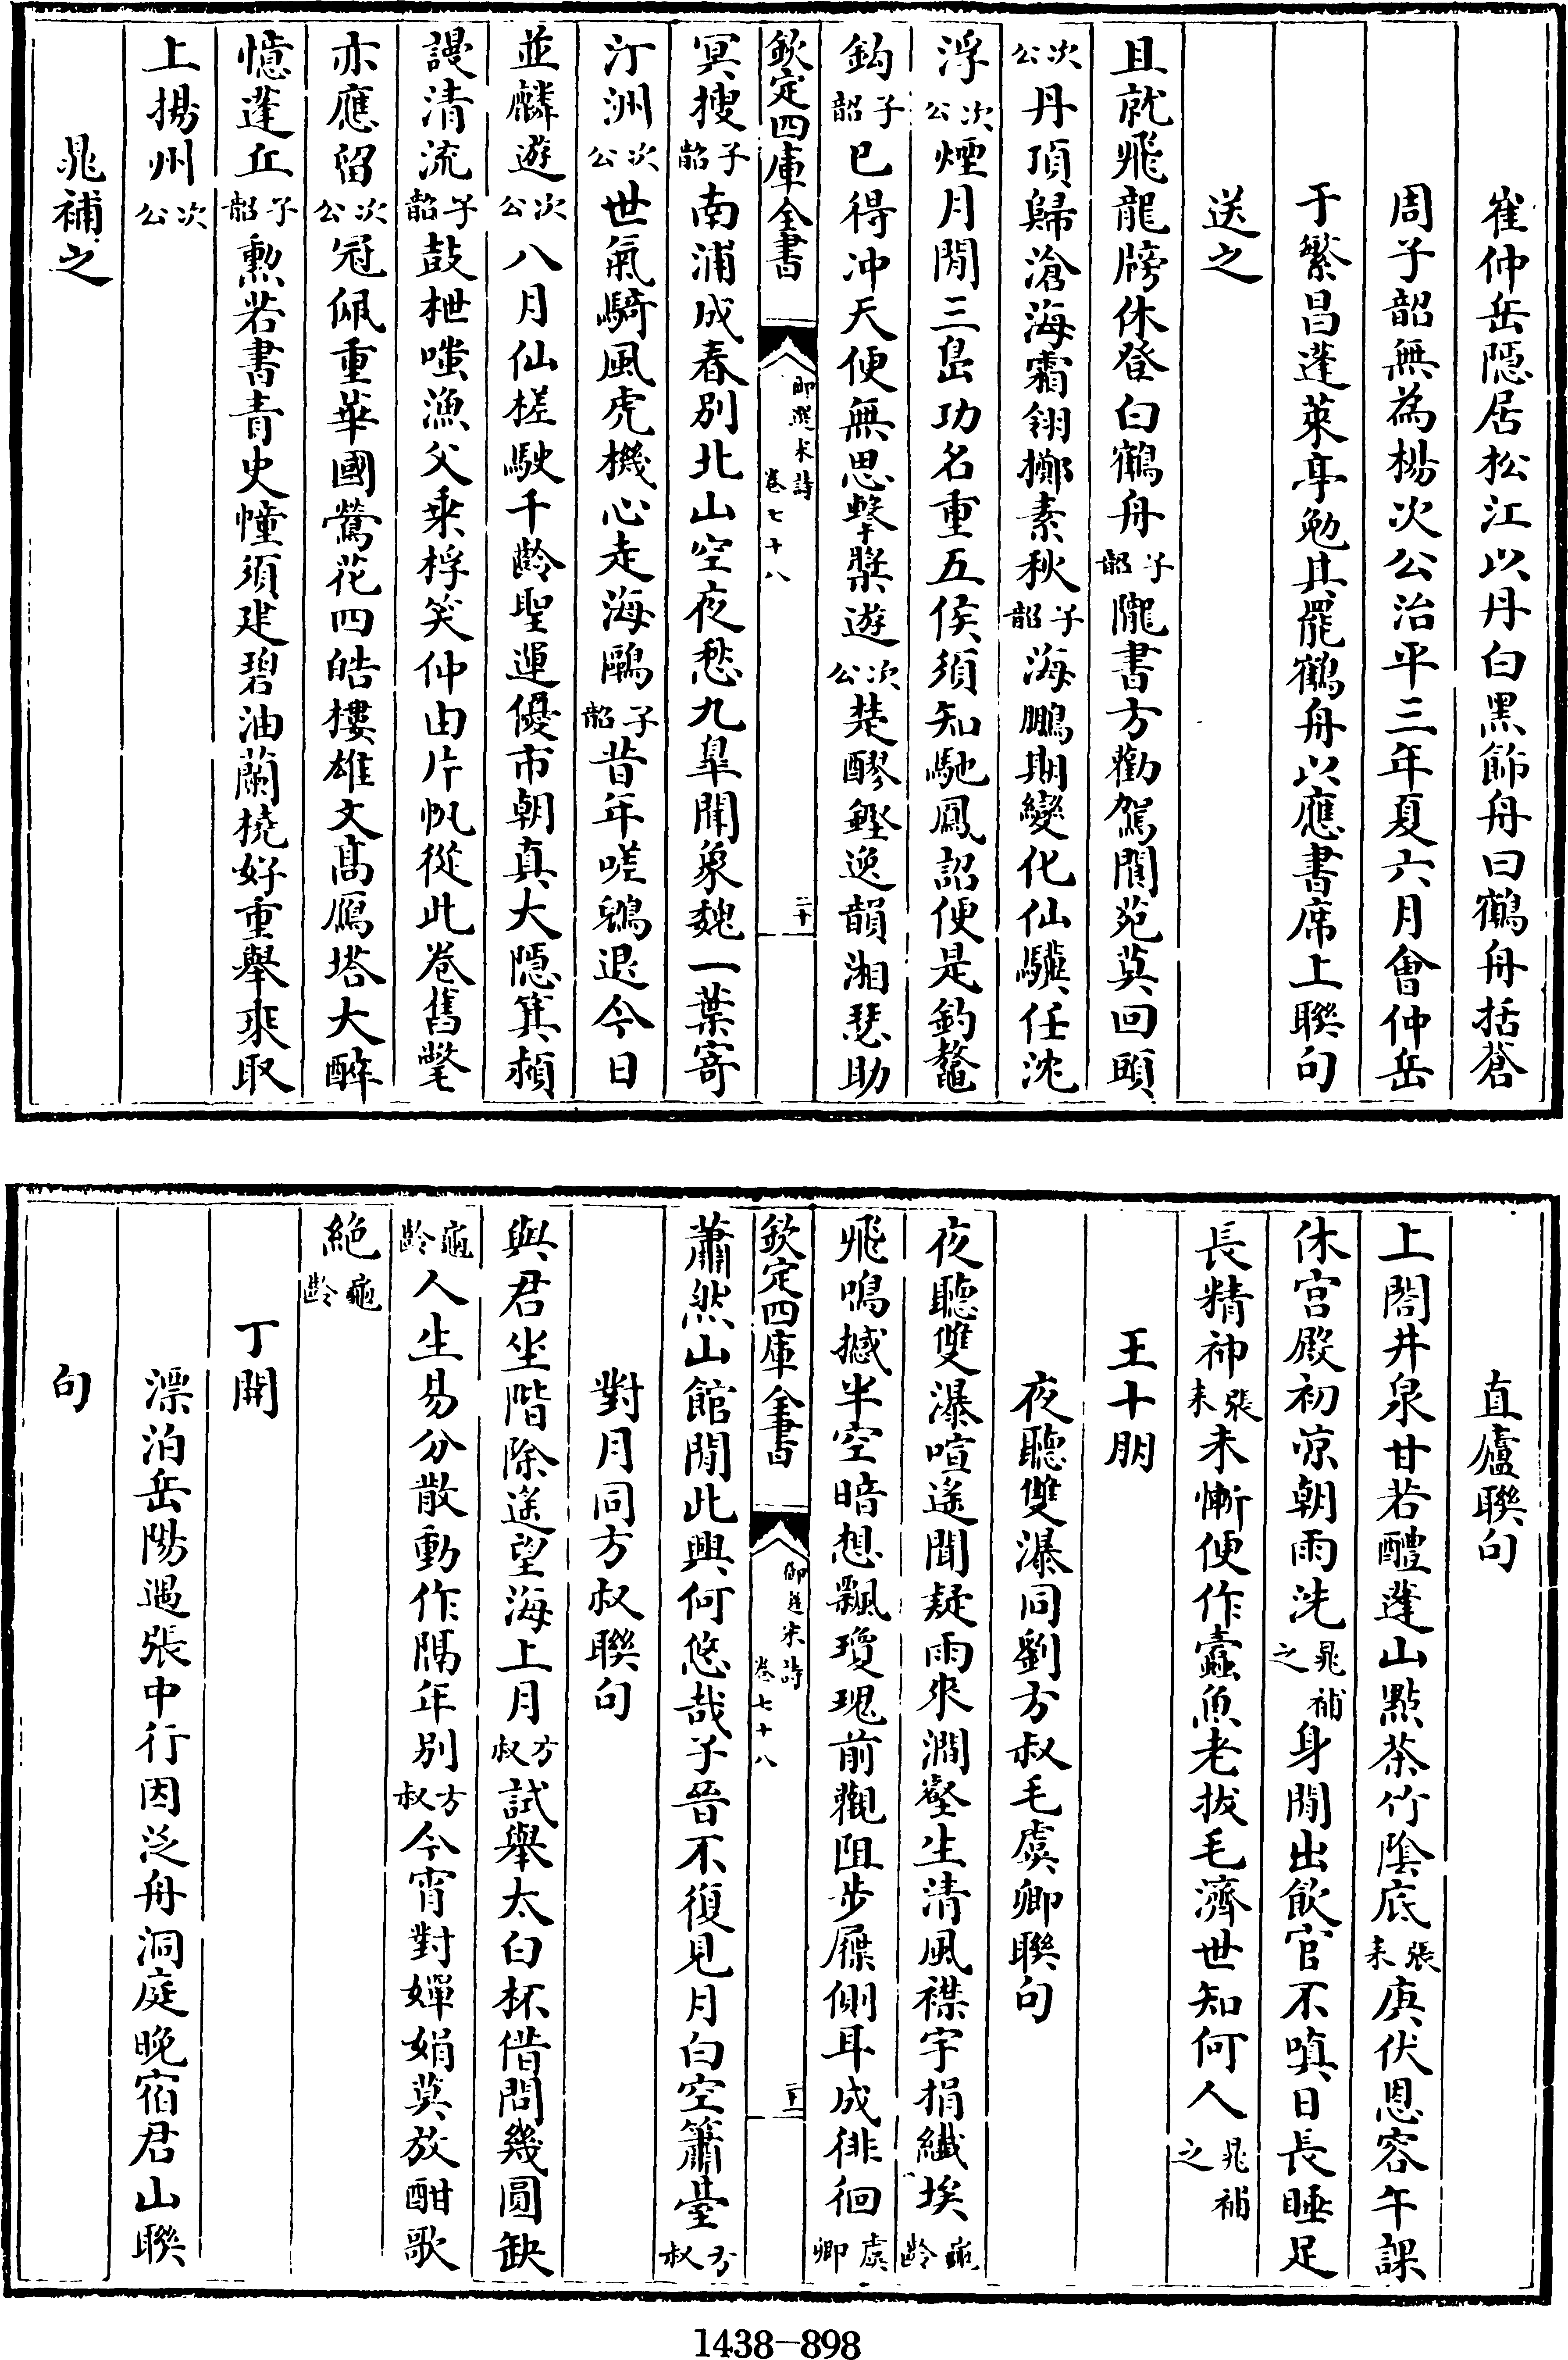 崔仲岳隠居松江以丹白黑飾舟曰鶴舟括蒼
周子韶無為楊次公治平三年夏六月會仲岳
于繁昌蓬萊亭勉其罷鶴舟以應書席上聯句
送之
且就飛龍牓休登白鶴舟子韶隴書方勸駕閬苑莫回頭
次公丹頂歸滄海霜翎擲素秋子韶海鵬期變化仙驥任沈
浮次公煙月閒三島功名重五侯須知馳鳳詔便是釣鼇
鈎子韶已得冲天便無思擊檗遊次公楚醪鏗逸韻湘瑟助
欽定四庫全書 御選宋詩 卷七十八 二十
冥搜子韶南浦成春別北山空夜愁九臯聞象魏一葉寄
汀洲次公世氣騎風虎機心走海鷗子韶昔年嗟鶂退今日
並麟遊次公八月仙槎駛千齡聖運優市朝真大隠箕潁
謾清流子韶鼓枻嗤漁父乗桴笑仲由片帆從此卷舊氅
亦應留次公冠佩重華國鶯花四皓樓雄文高鴈塔大醉
憶蓬丘子韶勲若書青史幢須建碧油蘭橈好重舉來取
上揚州次公
晁補之
直廬聯句
上閤井泉甘若醴蓬山點茶竹陰底張耒庚伏恩容午課
休宫殿初凉朝雨洗晁補之身閒出飲官不嗔日長睡足
長精神張耒未慚便作蠧魚老拔毛濟世知何人晁補之
王十朋
夜聽雙瀑同劉方叔毛虞卿聯句
夜聽雙瀑喧遥聞疑雨來澗壑生清風襟宇捐纎埃龜齡
飛鳴撼半空暗想飄瓊瑰前觀阻步屧側耳成徘徊虞卿
欽定四庫全書 御選宋詩 卷七十八 二十一
蕭然山館閒此興何悠哉子晉不復見月白空簫臺方叔
對月同方叔聯句
與君坐階除遥望海上月方叔試舉太白杯借問幾圓缺
龜齡人生易分散動作隔年別方叔今宵對嬋娟莫放酣歌
絶龜齡
丁開
漂泊岳陽遇張中行因泛舟洞庭晚宿君山聯
句
1438-898